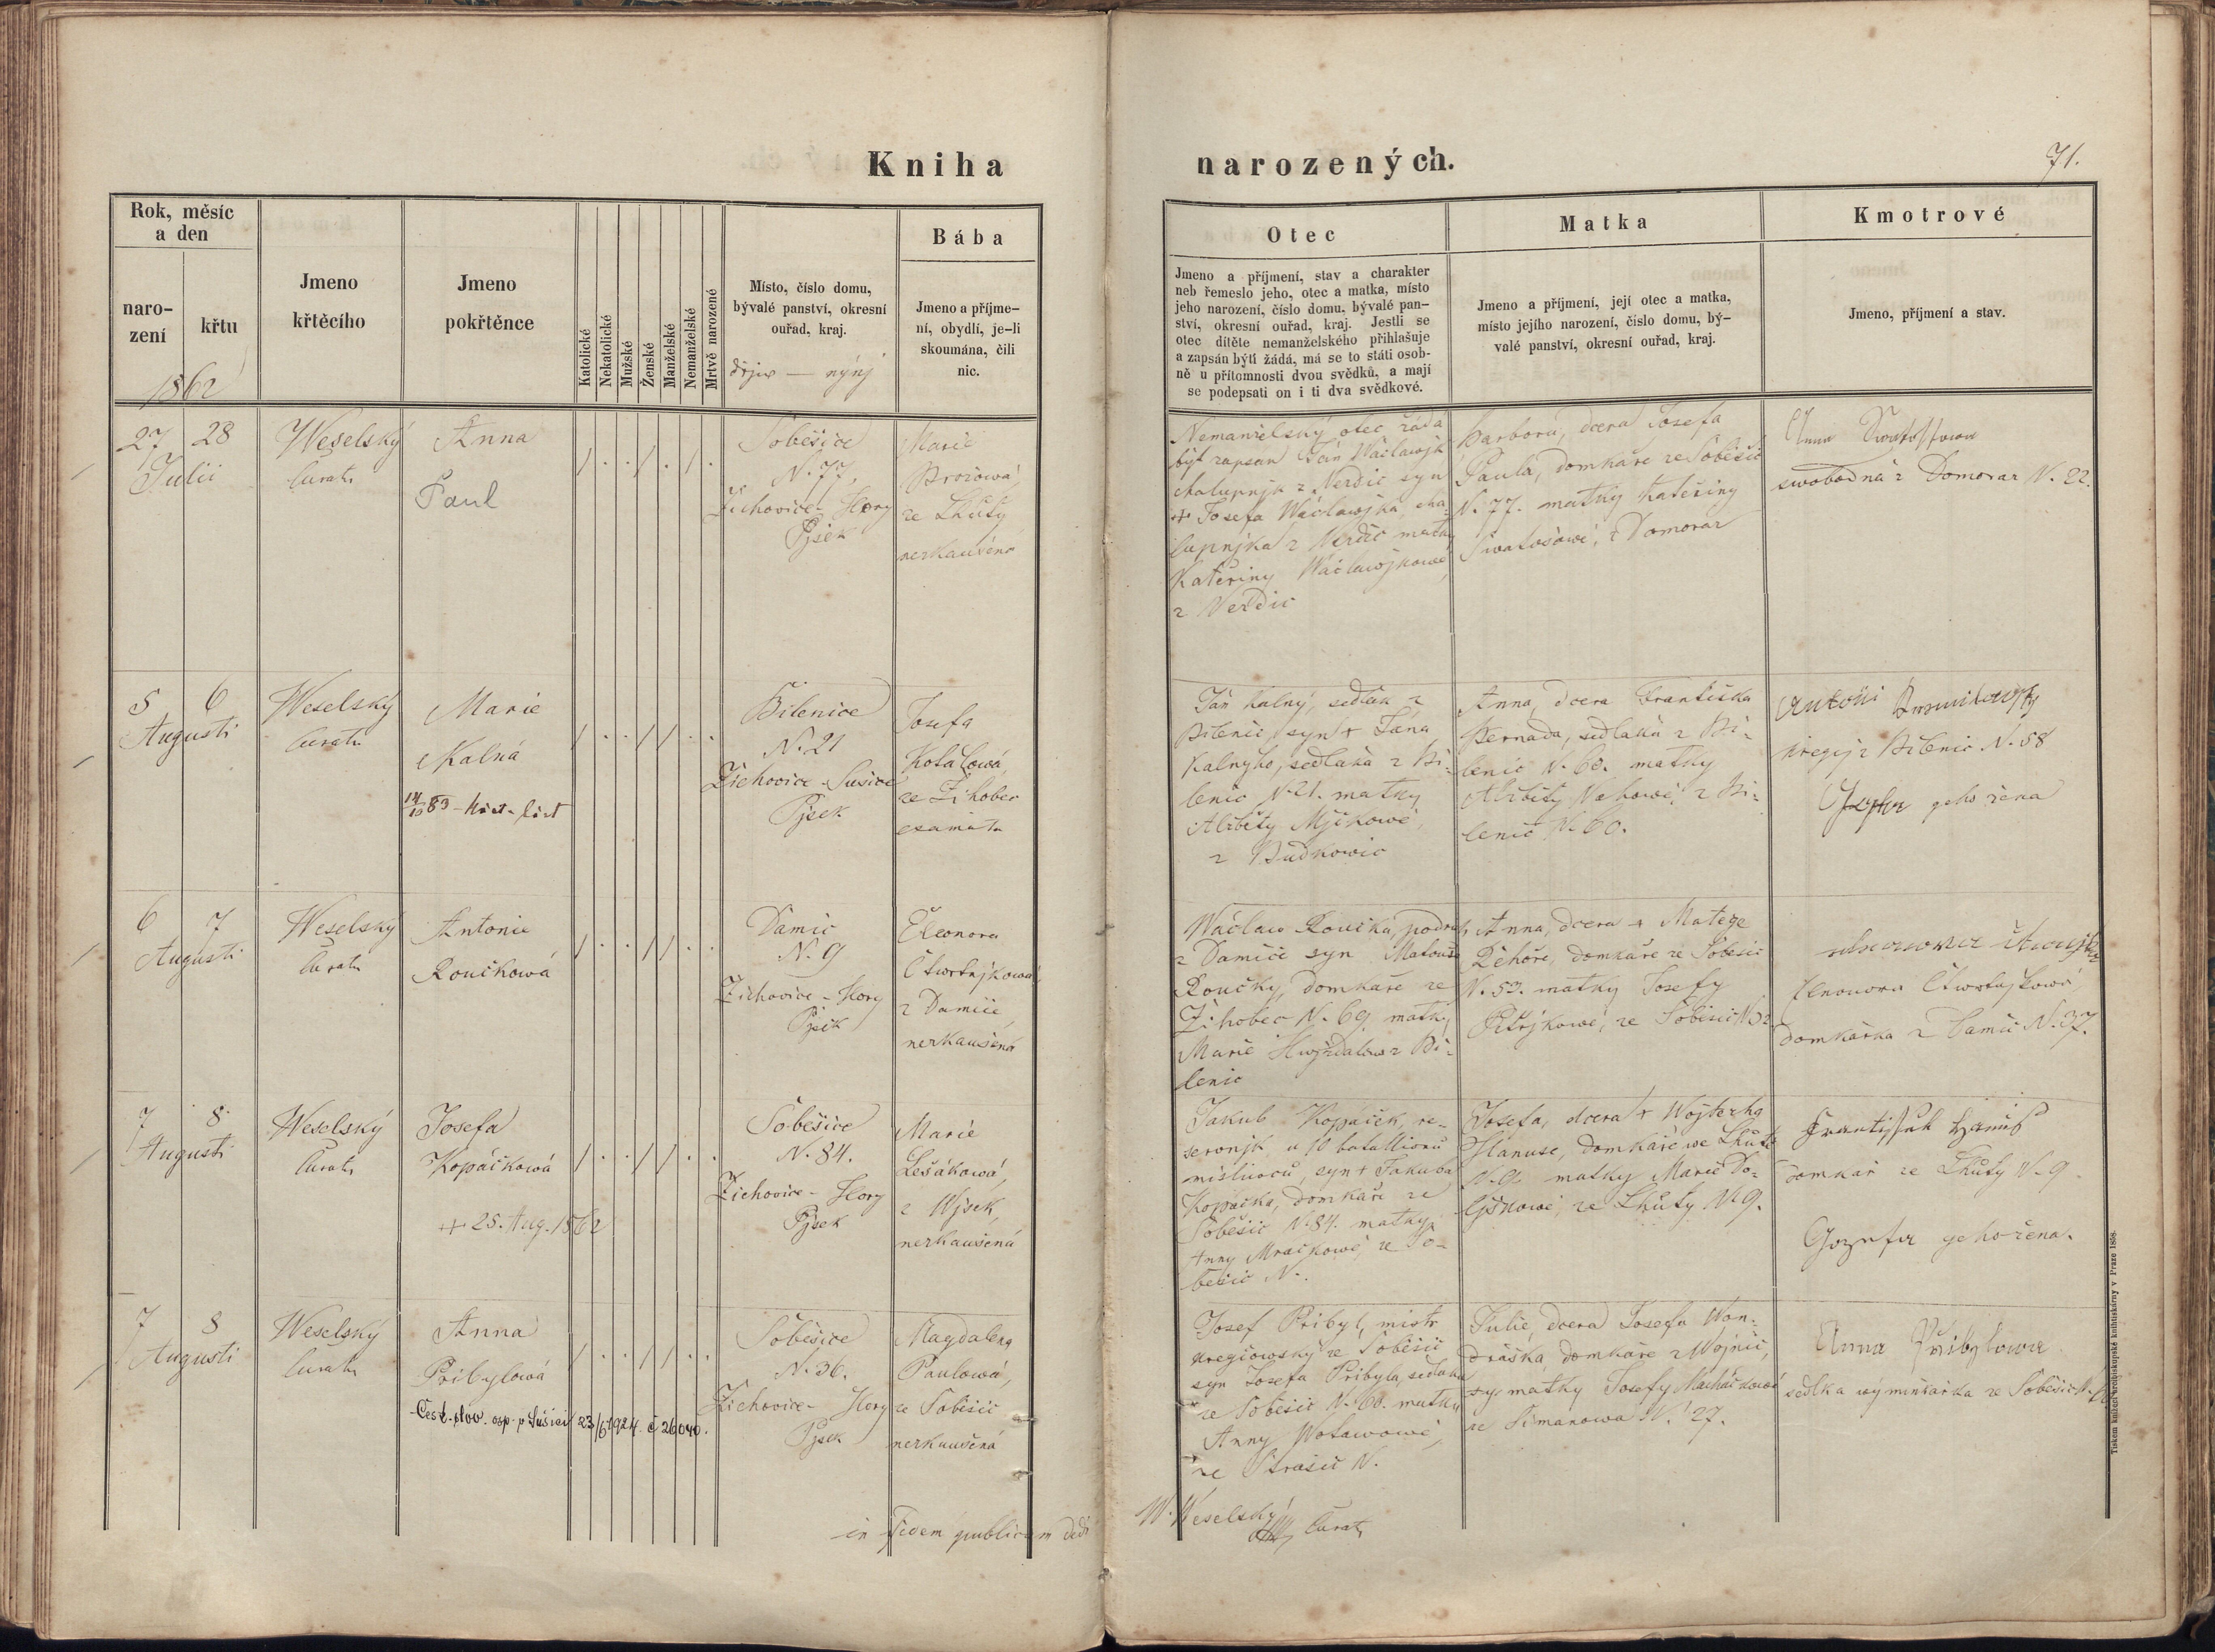 Kniha
narozených.
71.
Rok, měsíc
a den
naro-
zení
křtu
1862
Jmeno
křtěcího
Jmeno
pokřtěnce
Katolické
Nekatolické
Mužské
Ženské
Manželské
Nemanželské
Mrtvě narozené
Místo, číslo domu,
bývalé panství, okresní
ouřad, kraj.
dřjw — nynj
Bába
Jmeno a příjme-
ní, obydlí, je-li
skoumána, čili
nic.
Otec
Jmeno a příjmení, stav a charakter
neb řemeslo jeho, otec a matka, místo
jeho narození, číslo domu, bývalé pan-
ství, okresní ouřad, kraj. Jestli se
otec dítěte nemanželského přihlašuje
a zapsán býti žádá, má se to státi osob-
ně u přítomnosti dvou svědků, a mají
se podepsati on i ti dva svědkové.
Matka
Jmeno a příjmení, její otec a matka,
místo jejího narození, číslo domu, bý-
valé panství, okresní ouřad, kraj.
Kmotrové
Jmeno, příjmení a stav.
27 28
Julii
Weselský
Curat
Anna
Paul
Soběšice
N. 77.
Žichovice - Hory
Pjsek
Marie
Brožowá
ze Lhůty
nezkaušená
Nemanželský otec žádá
být zapsán Ján Wáclawjk
chalupnjk z Nezdic syn
+ Josefa Wáclawjka cha-
lupnjka z Nezdic matky
Kateřiny Wáclawjkowé
z Nezdic
Barbora, dcera Josefa
Paula, domkáře ze Soběšic
N. 77. matky Kateřiny
Swatošowé, z Domoraz
Anna
swobodná z Domoraz N. 22.
5 6
Augusti
Weselský
Curat
Marie
Kalná
14/10 83 - křest. list
Bilenice
N. 21
Žichovice - Sušice
Pjsek
Josefa
Kolářowá
ze Žihobec
examinata
Ján Kalný, sedlák z
Bilenic, syn + Jána
Kalnýho, sedláka z Bi-
lenic N. 21. matky
Alžběty Mjčkowé,
z Budkowic
Anna, dcera Františka
Bernada, sedláka z Bi-
lenic N. 60. matky
Alžběty z Bi-
lenic N. 60.
Antoni
kregčj z Bilenic N. 58
Josefa geho žena
6 7
Augusti
Weselský
Curat
Antonie
Roučkowá
Damic
N. 9
Žichovice - Hory
Pjsek
Eleonora
Čtwrtnjkowá
z Damič
nezkaušená
Wáclaw Roučka, podruh
z Damič syn Matouše
Roučky, domkáře ze
Žihobec N. 69 matky
Marie z Bi-
lenic
Anna, dcera + Matege
Řehoře, domkáře ze Soběšic
N. 53. matky Josefy
Petřjkowé, ze Soběšic N 32
Elenora Čtwrtnjkowá
domkářka z Damič N. 37.
7 8
Augusti
Weselský
Curat
Josefa
Kopáčkowá
+ 25. Aug. 1862
Soběšice
N. 84.
Žichovice - Hory
Pjsek
Marie
Lešákowá,
z Wjsek,
nezkaušená
Jakub Kopáček, re-
serwnjk u 10 batallionu
misliwců, syn + Jakuba
Kopáčka, domkáře ze
Soběšic N. 84. matky
Anny Mračkowé, ze So-
běšic N.
Josefa, dcera + Wojtěcha
Hanuse, domkáře we Lhůtě
N. 9. matky Marie Do-
ljškowé, ze Lhůty N. 9.
František Hanuß
domkář ze Lhůty N. 9
Gozefa geho žena.
7 8
Augusti
Weselský
Curat
Anna
Přibylowá
Česk. slov. osp. p. Sušici 23/6 1924 č 26040.
Soběšice
N. 36.
Žichovice - Hory
Pjsek
Magdalena
Paulowá,
ze Soběšic
nezkaušená
Josef Přibyl, mistr
kregčowský ze Soběšic
syn Josefa Přibyla, sedláka
ze Soběšic N. 60. matky
Anny Wotawowé,
ze Strašic N.
Julie, dcera Josefa Won-
dráška, domkáře z Wojnic,
matky Josefy Macháčkowé
ze Simanowa N. 27.
Anna Přibylowa
sedlka wýminkářka ze Soběšic N.
in fidem publicam dedi
W. Weselský
Curat
Tiskem knížecí arcibiskupské knihtiskárny v Praze 1858.